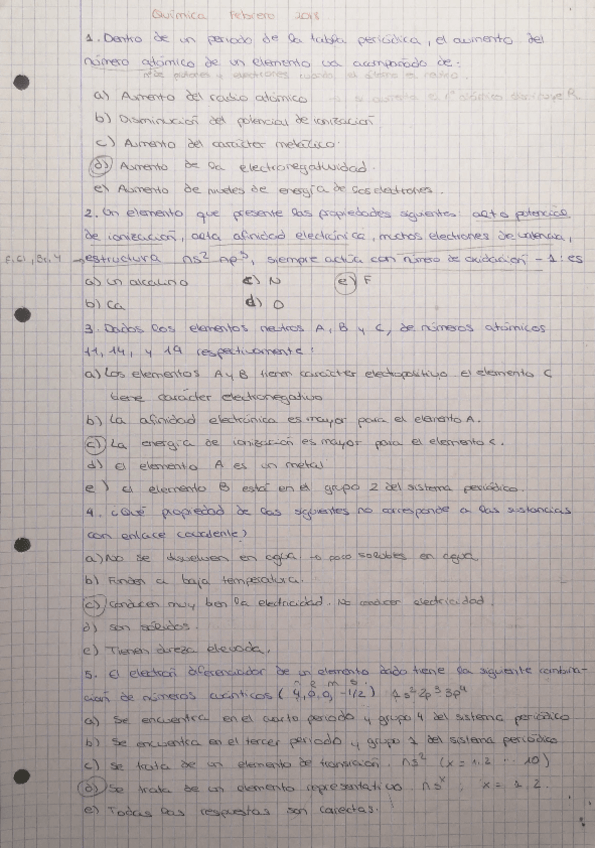 Química Febrero 2018
1. Dentro de un periodo de la tabla periódica, el aumento del
número atómico de un elemento va acompañado de:
más protones y electrones cuando el átomo es
a) Aumento del radio atómico
b) Disminución del potencial de ionización
c) Aumento del carácter metálico.
d) Aumento de la electronegatividad.
e) Aumento de niveles de energía de los electrones.
2. Un elemento que presente las propiedades siguientes alto potencial
de ionización, alta afinidad electrónica, muchos electrones de valencia,
F, Cl, Br, Y → estructura ns² np⁵, siempre actúa con número de oxidación -1: es
a) un alcalino c) N e) F
b) Ca d) O
3. Dados los elementos neutros A, B y C, de números atómicos
11, 14, y 19 respectivamente:
a) Los elementos A y B tienen carácter electropositivo el elemento C
tiene carácter electronegativo
b) La afinidad electrónica es mayor para el elemento A.
c) La energía de ionización es mayor para el elemento C.
d) el elemento A es un metal
e) el elemento B está en el grupo 2 del sistema periódico.
4. ¿Qué propiedad de las siguientes no corresponde a las sustancias
con enlace covalente?
a) No se disuelven en agua → poco solubles en agua
b) Funden a baja temperatura.
c) Conducen muy bien la electricidad. No conducen electricidad.
d) son sólidos.
e) Tienen dureza elevada.
5. El electrón diferenciador de un elemento dado tiene la siguiente combina-
n l m s
ción de números cuánticos (4,0,0,-1/2)
a) Se encuentra en el cuarto periodo y grupo 4 del sistema periódico
b) Se encuentra en el tercer periodo y grupo 1 del sistema periódico
c) Se trata de un elemento de transición. ns² (x = 1,2 ... 10)
d) Se trata de un elemento representativo nsˣ ; x = 1, 2.
e) Todas las respuestas son correctas.